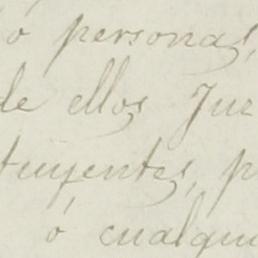 ó personas,
de ellos Juz
tuyentes, p
ó cualqui